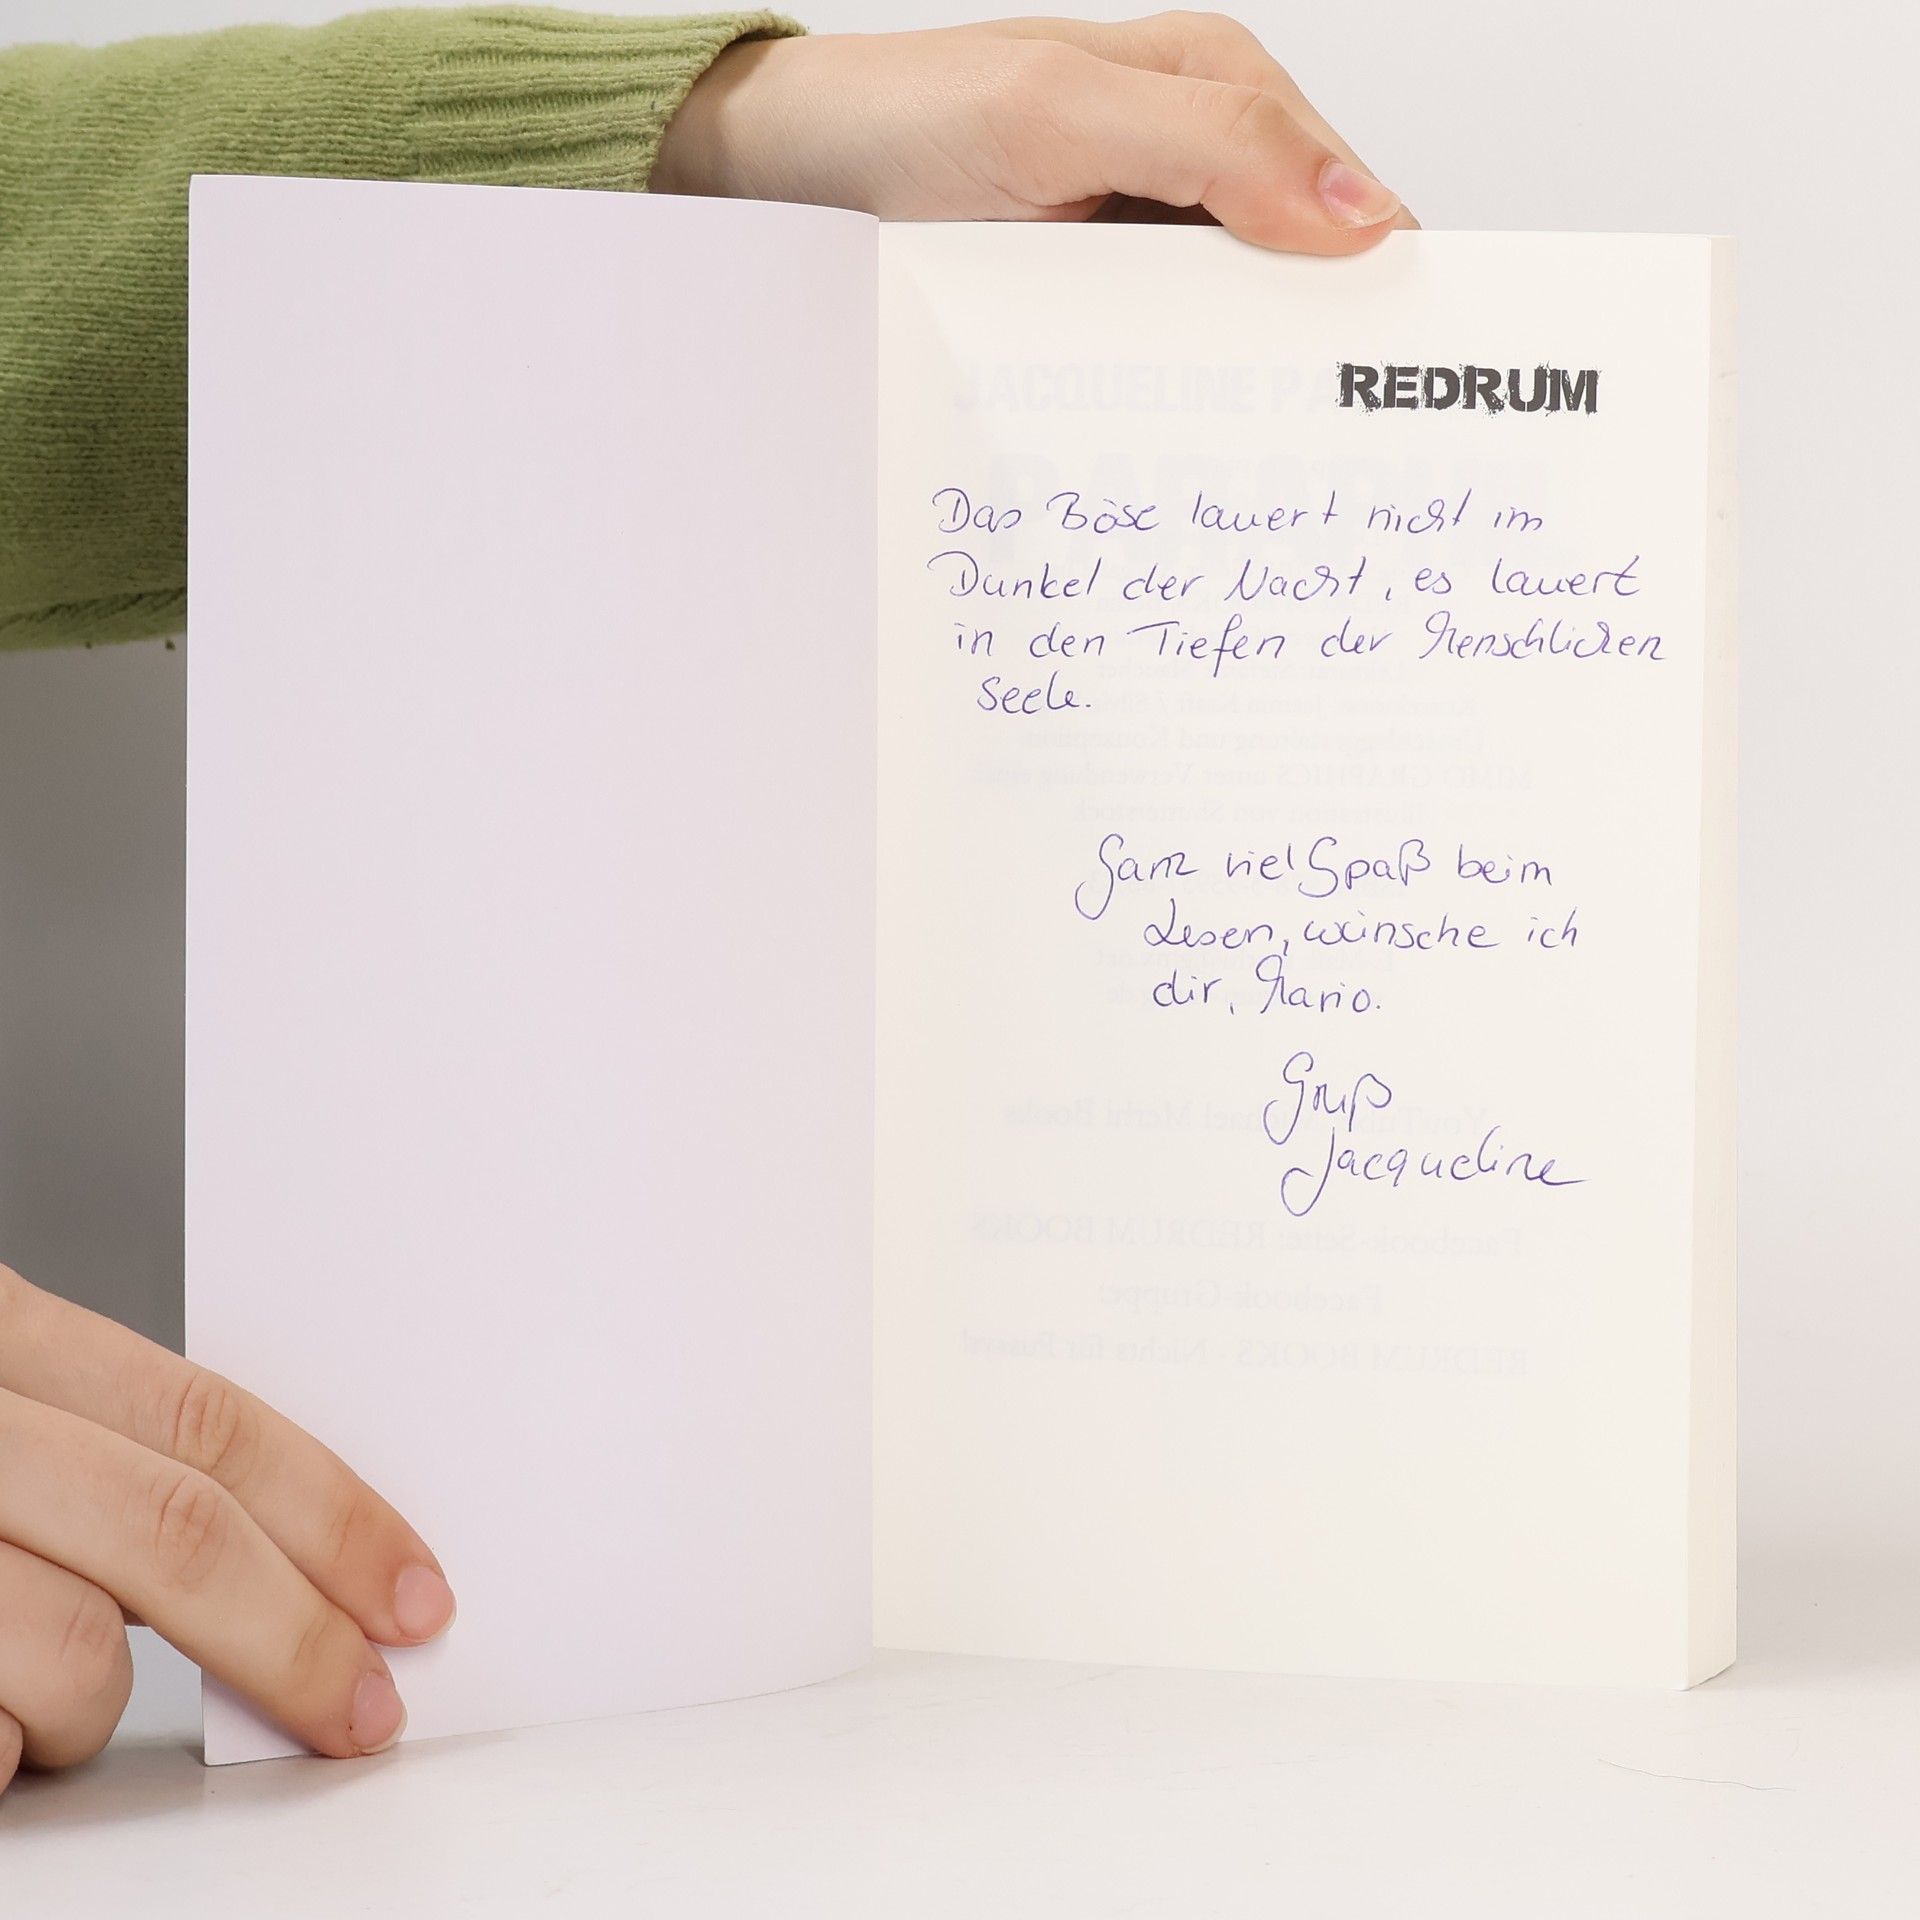 REDRUM
Das Böse lauert nicht im
Dunkel der Nacht, es lauert
in den Tiefen der Menschlichen
Seele.
Ganz viel Spaß beim
Lesen, wünsche ich
dir, Mario.
Gruß
Jacqueline